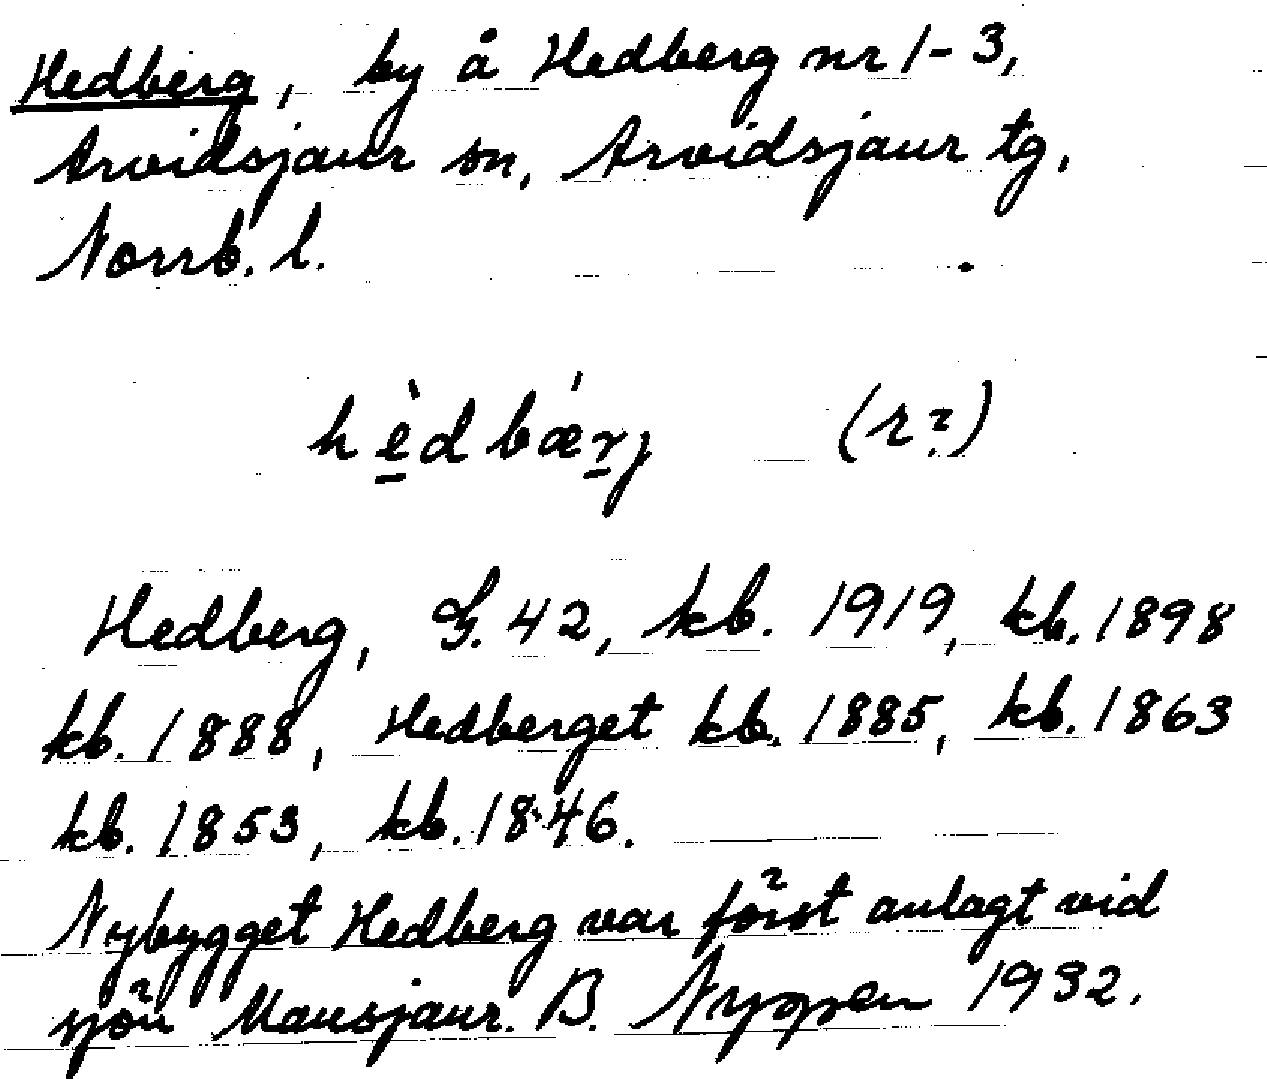 Hedberg, by å Hedberg nr 1-3,
Arvidsjaur sn, Arvidsjaur tg,
Norrb. l.
hè̲dbǽr̲j (r?)
Hedberg, G. 42, kb. 1919, kb. 1898
kb. 1888, Hedberget kb. 1885, kb. 1863
kb. 1853, kb. 1846.
Nybygget Hedberg var först anlagt vid
sjön Mausjaur. B. Nyppen 1932.